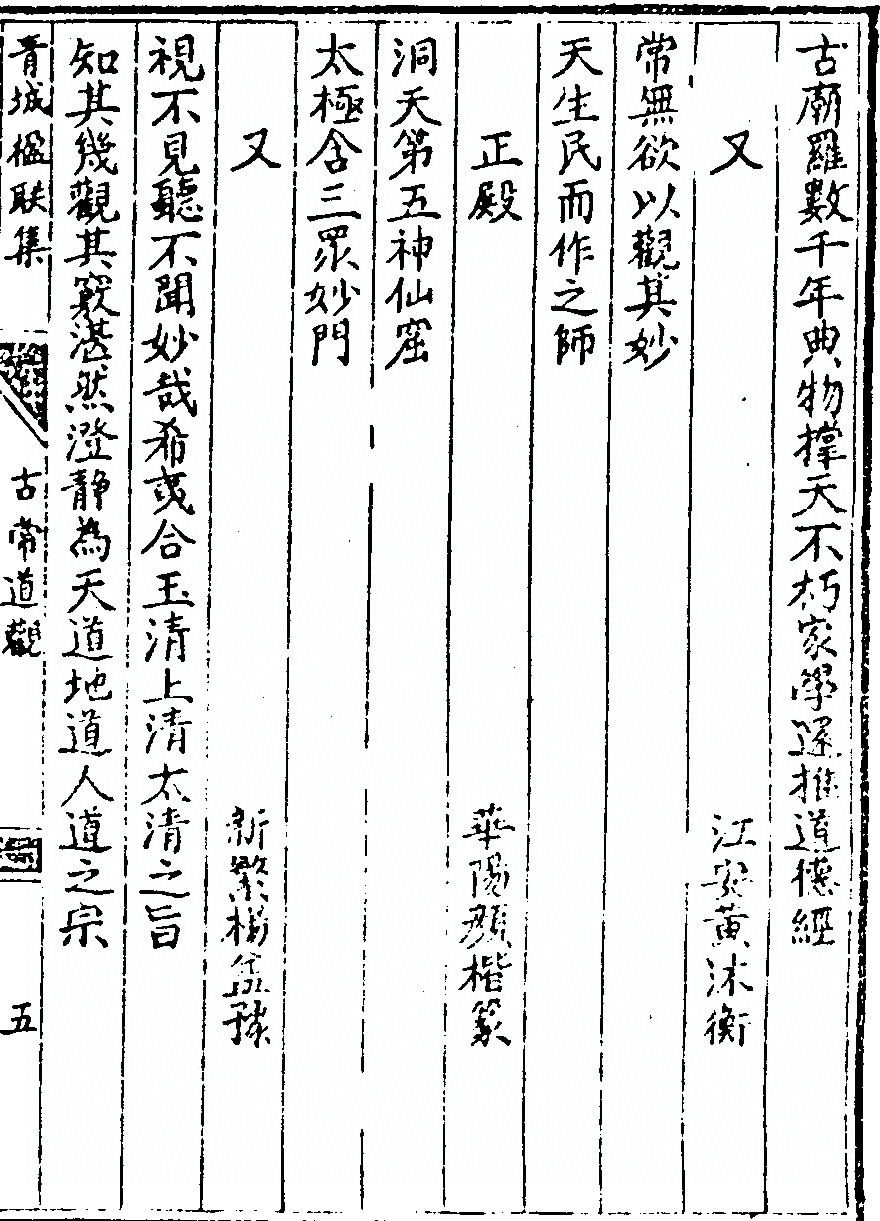 古廟羅數千年典物撑天不朽家學遂推道德經
又　江安黃沫衡
常無欲以觀其妙
天生民而作之師
正殿　華陽顏楷篆
洞天第五神仙窟
太極含三眾妙門
又　新繁楊
視不見聽不聞妙哉希夷合玉清上清太清之旨
知其幾觀其竅湛然澄靜為天道地道人道之宗
青城楹联集　古常道觀　五